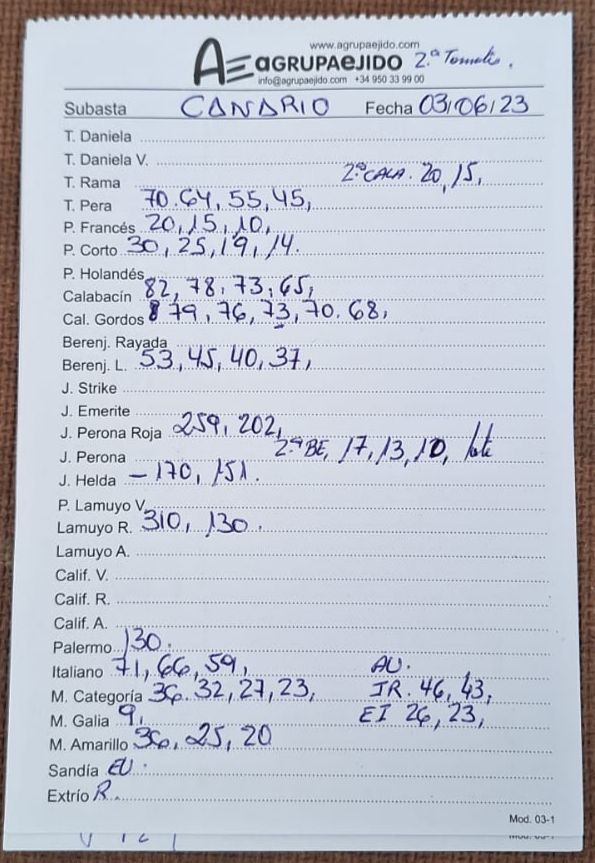 www.agrupaejido.com
AGRUPAEJIDO 2.ª Tomate.
info@agrupaejido.com +34 950 33 99 00
Subasta CANARIO Fecha 03/06/23
T. Daniela
T. Daniela V.
T. Rama 2.ª CALA. 20, 15,
T. Pera 70. 64, 55, 45,
P. Francés 20, 15, 10,
P. Corto 30, 25, 19, 14.
P. Holandés
Calabacín 82, 78, 73, 65,
Cal. Gordos 79, 76, 73, 70. 68,
Berenj. Rayada
Berenj. L. 53, 45, 40, 37,
J. Strike
J. Emerite
J. Perona Roja 259, 202,
J. Perona 2.ª BE, 17, 13, 10,
J. Helda – 170, 151.
P. Lamuyo V.
Lamuyo R. 310, 130.
Lamuyo A.
Calif. V.
Calif. R.
Calif. A.
Palermo 130.
Italiano 71, 66, 59, AU.
M. Categoría 36. 32, 27, 23, JR. 46, 43,
M. Galia 9, EI 26, 23,
M. Amarillo 36, 25, 20
Sandía EU.
Extrío R.
Mod. 03-1